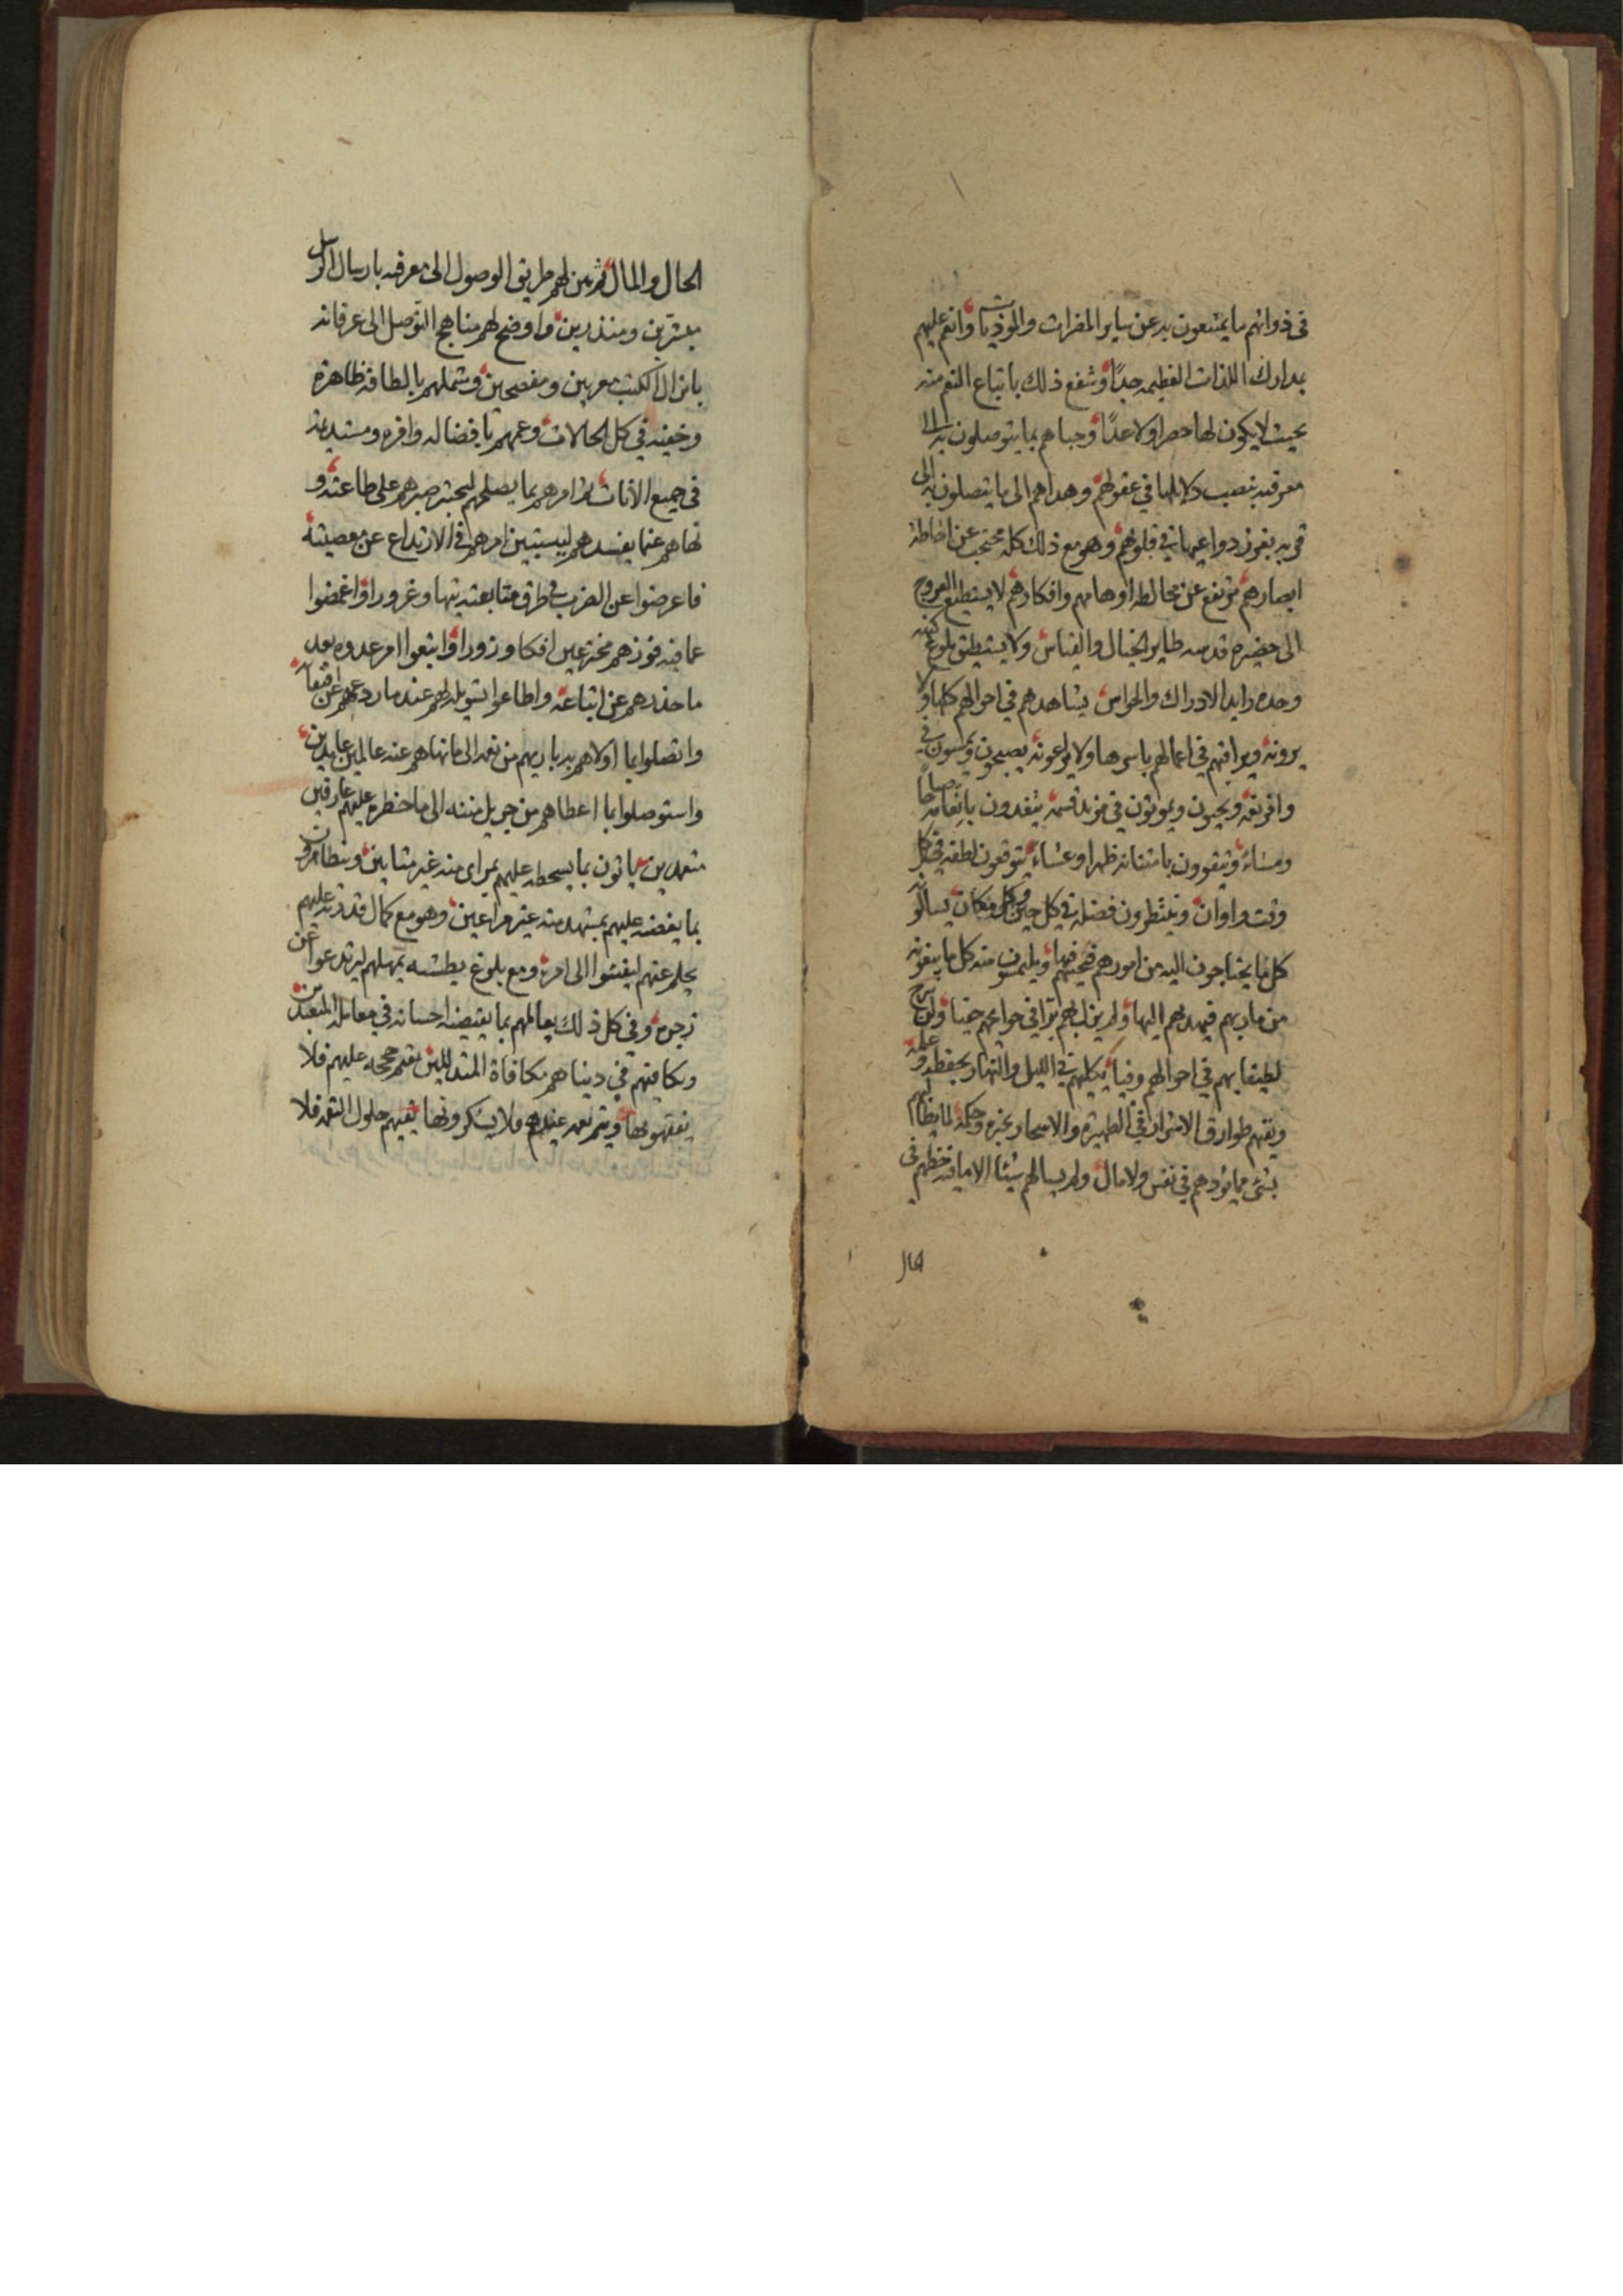 في ذواتهم ما يمتنعون به عن ساير المضرات والموذيات وانعم عليهم
بدارك اللذات العظيمه جدا وشفع ذلك باتباع النعم منه
بحيث لا يكون لها حصرا ولا عدا وحباهم بما يتوصلون به الى
معرفته بنصب دلايلها في عقولهم وهداهم الى ما يتصلون به الى
قربه دواعيها في قلوبهم وهو مع ذلك كله محتجب عن احاطة
ابصارهم مرتفع عن مخالطه اوهامهم وافكارهم لا يستطيع العروج
الى حضيرة قدسه طاير الخيال والقياس ولا يستطيق بلوغ كنه
وحده رايد الادراك والحواس يشاهدهم في احوالهم كلها ولا
يرونه ويراقبهم في اعمالهم باسرها ولا يراعونه يصبحون ويمسون في
وافر نعمه ويحيون ويموتون في مزيد قسمه يتغدون بانعامه صباحا
ومساء ويتقوون بامتنانه ظهرا وعشاء يتوقعون لطفه في كل
وقت واوان وينتظرون فضله في كل حين وكل ومكان يسالونه
كل ما يحتاجون اليه من امورهم فيهما ويلتمسون منه كل ما يبتغونه
من ماربهم فيهديهم اليها ولم يزل بهم برا في حوايجهم حفيا ولن يبرح
لطيفا بهم في احوالهم وفيا يكلئهم في الليل والنهار بحفظه وعلمه
ويقيهم طوارق الاشرار في الظهيرة والاسحار وحكمه لم
بشئ مما يؤدهم في نفس ولا مال ولم يسالهم شيئا الا ما فيه حظهم في
الحال
الحال والمال ثم بين لهم طريق الوصول الى معرفه بارسال الرسل
مبشرين ومنذرين واوضح لهم مناهج التوصل الى عرفانه
بانزال الكتب معربين ومفصحين وشملهم بالطافه ظاهرة
وخفيه في كل الحالات وعمهم بافضاله وافره ومستديمه
في جميع الآنات ثم امرهم بما يصلحهم صبرهم على طاعته و
نهاهم عما يفسدهم ليستبين امرهم في الارتداع عن معصيته
فاعرضوا عن في طرق متابعته تيها وغرورا واغمضوا
عما فيه فوزهم مخترعين افكا وزورا واتبعوا امر عدوه بعد
ما حذرهم عن اتباعه واطاعوا تسويله لهم عند ما ردعهم عن
واتصلوا بما اولاهم به باريهم من نعمه الى ما نهاهم عنه عالمين عامدين
واستوصلوا بما اعطاهم من جزيل مننه الى ما حظره عليهم عارفين
متعمدين ياتون بما يسخطه عليهم بمراى منه غير ويتظاهرون
بما يغضبه عليهم بمشهد منه غير مراعين وهو مع كمال قدرته عليهم
يحلم عنهم ليفيئوا الى امره ومع بلوغ بطشه يمهلهم ليرتدعوا عن
زجره وفي كل ذلك يعاملهم بما يقتضيه احسانه في معامله المتعبدين
ويكافيهم في دنياهم مكافاة المتذللين يقيم حججه عليهم فلا
يفقهونها ويتم نعمه عندهم فلا يشكرونها يقيهم حلول النقمه فلا